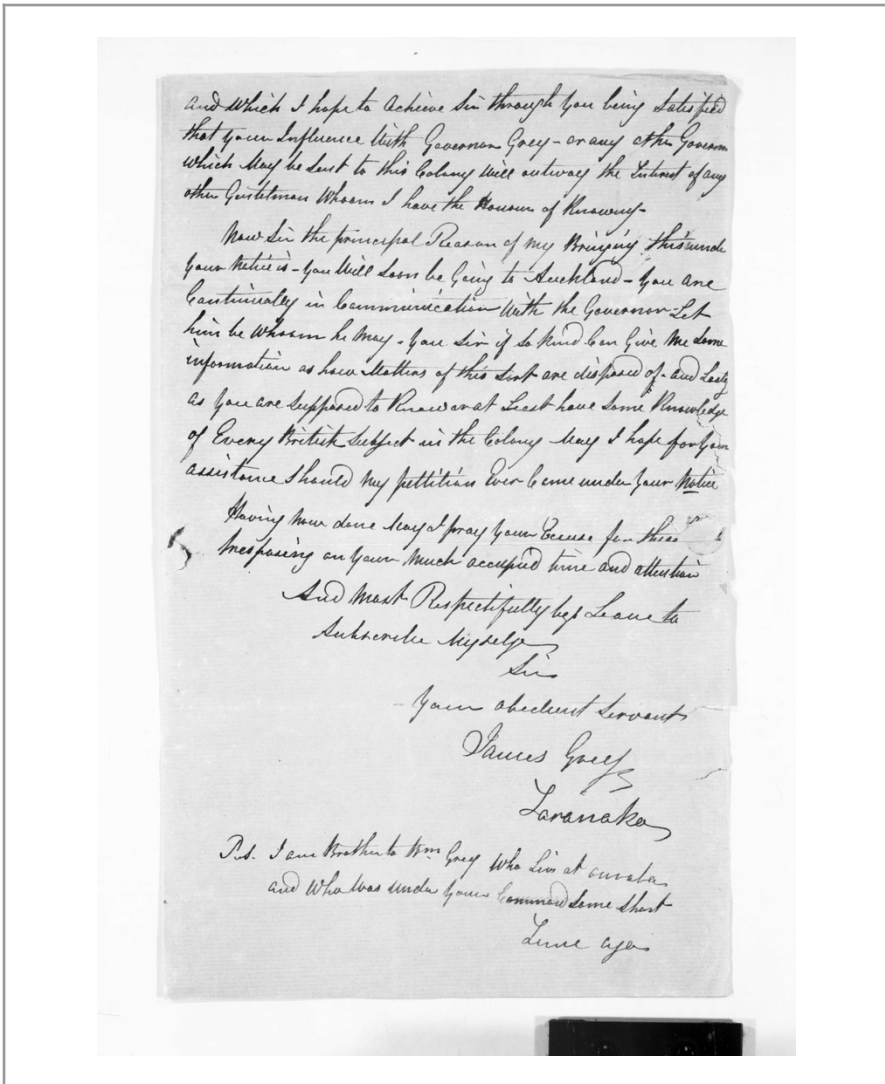 and Which I hope to Achieve Sir through you being Satisfied
that your Influence With Governor Grey - or any other Governor
Which May be Sent to this Colony Will outway the Interest of any
other Gentelman Whoom I have the Honour of Knowing -
Now Sir the principal Reason of my Bringing this unde
Your Notice is - You Will Soon be Going to Auckland - You are
Continualey in Communication With the Governor - Let
him be Whoom he May - You Sir if So Kind Can Give Me Some
information as how Matters of this Sort are disposed of - and Lasty
as You are Supposed to Know or at Least have Some Knowledge
of Every British Subject in the Colony May I hope for Your
assistance Should My pettition Ever Come under Your Notice
Having Now done May I pray Your Excuse for thus
trespasing on Your Much accupied time and attention
And Most Respectifully beg Leave to
Subscribe Myself
Sir
Your obedient Servant
James Grey
Taranaka
P.s. I am Brother to Wm. Grey Who Livs at
and Who Was under Your Command Some Short
Time ago